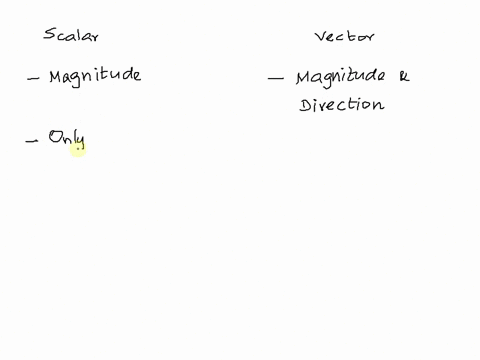 Scalar
Vector
– Magnitude
– Magnitude &
Direction
– Only